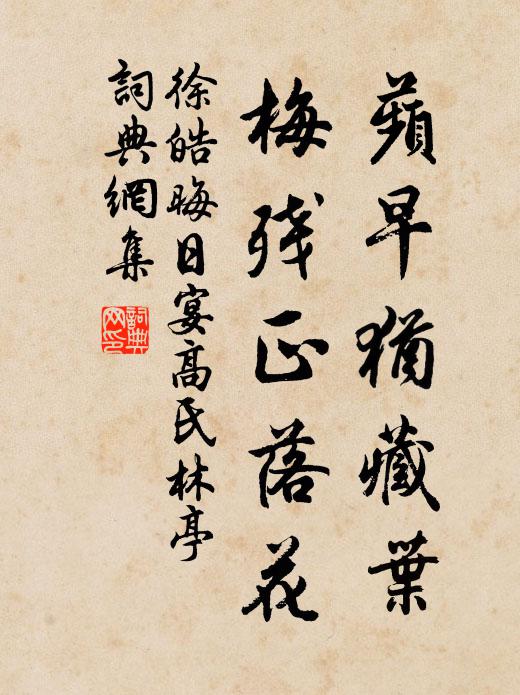 蘋早猶藏葉
梅残正落花
徐皓晦日宴高氏林亭
詞典網集
詞典网印